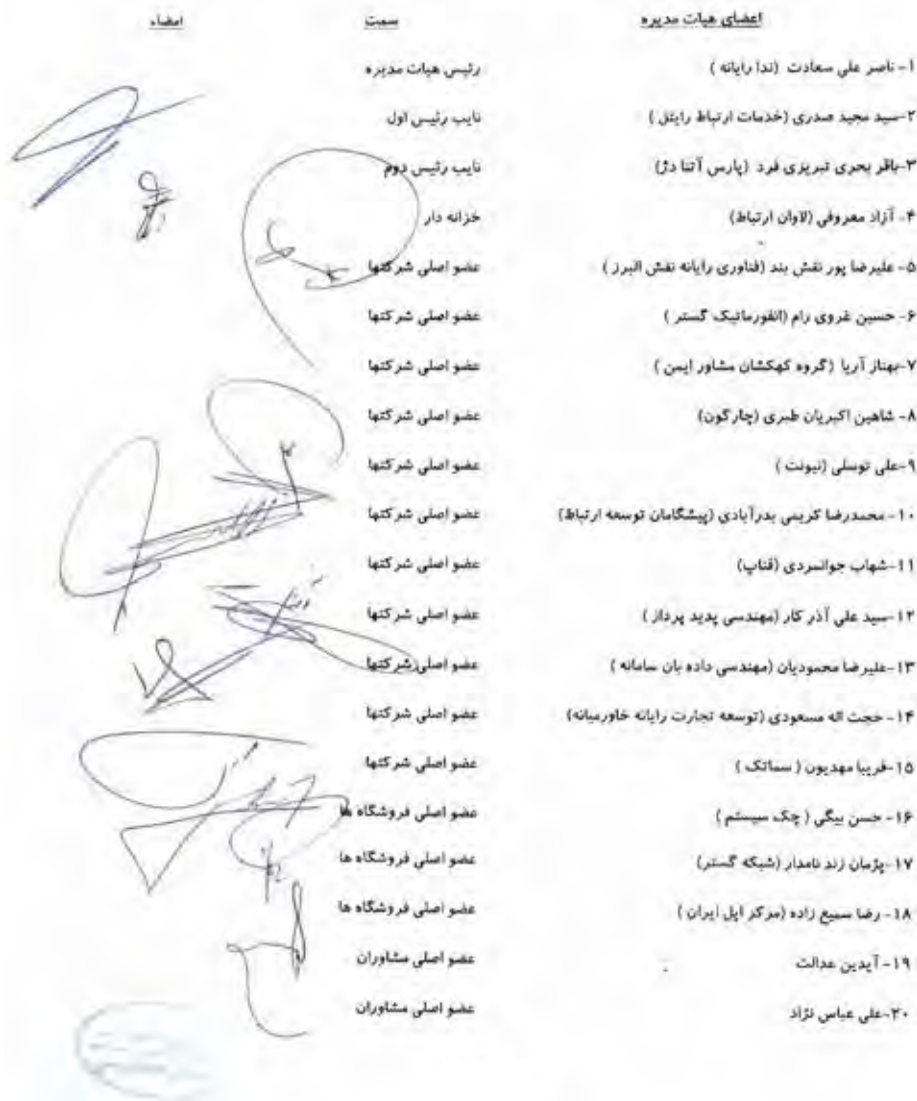 اعضای هیات مدیره سمت امضاء
۱- ناصر علی سعادت (ندا رایانه) رئیس هیات مدیره
۲-سید مجید صدری (خدمات ارتباط رایتل) نایب رئیس اول
۳-باقر بحری تبریزی فرد (پارس آتنا دژ) نایب رئیس دوم
۴- آزاد معروفی (لاوان ارتباط) خزانه دار
۵- علیرضا پور نقش بند (فناوری رایانه نقش البرز) عضو اصلی شرکتها
۶- حسین غروی رام (انفورماتیک گستر) عضو اصلی شرکتها
۷-بهناز آریا (گروه کهکشان مشاور ایمن) عضو اصلی شرکتها
۸- شاهین اکبریان طبری (چارگون) عضو اصلی شرکتها
۹-علی توسلی (نیونت) عضو اصلی شرکتها
۱۰- محمدرضا کریمی بدرآبادی (پیشگامان توسعه ارتباط) عضو اصلی شرکتها
۱۱-شهاب جوانمردی (فناپ) عضو اصلی شرکتها
۱۲-سید علی آذر کار (مهندسی پدید پرداز) عضو اصلی شرکتها
۱۳-علیرضا محمودیان (مهندسی داده بان سامانه) عضو اصلی شرکتها
۱۴- حجت اله مسعودی (توسعه تجارت رایانه خاورمیانه) عضو اصلی شرکتها
۱۵-فریبا مهدیون (سماتک) عضو اصلی شرکتها
۱۶- حسن بیگی (چک سیستم) عضو اصلی فروشگاه ها
۱۷-پژمان زند نامدار (شبکه گستر) عضو اصلی فروشگاه ها
۱۸- رضا سمیع زاده (مرکز اپل ایران) عضو اصلی فروشگاه ها
۱۹- آیدین عدالت عضو اصلی مشاوران
۲۰-علی عباس نژاد عضو اصلی مشاوران